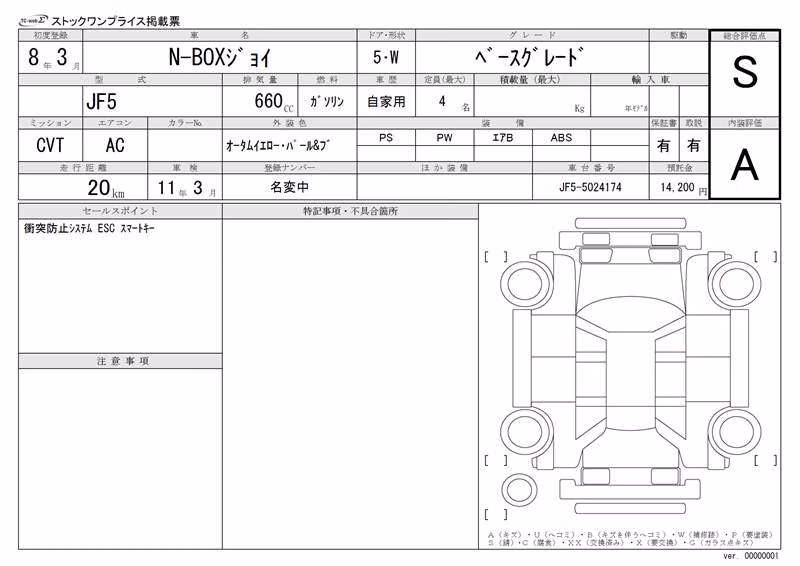 TC-webΣ ストックワンプライス掲載票
初度登録 車名 ドア・形状 グレード 駆動 総合評価点
8年3月 N-BOXジョイ 5・W ベースグレード S
型式 排気量 燃料 車歴 定員(最大) 積載量(最大) 輸入車
JF5 660CC ガソリン 自家用 4名 Kg 年モデル
ミッション エアコン カラーNo. 外装色 装備 保証書 取説 内装評価
CVT AC オータムイエロー・パール&ブ PS PW エアB ABS 有 有 A
走行距離 車検 登録ナンバー ほか装備 車台番号 預託金
20km 11年3月 名変中 JF5-5024174 14,200円
セールスポイント 特記事項・不具合箇所
衝突防止システム ESC スマートキー
注意事項
[ ] [ ]
[ ] [ ]
[ ]
A（キズ）・U（ヘコミ）・B（キズを伴うヘコミ）・W（補修跡）・P（要塗装）
S（錆）・C（腐食）・XX（交換済み）・X（要交換）・G（ガラス点キズ）
ver. 00000001